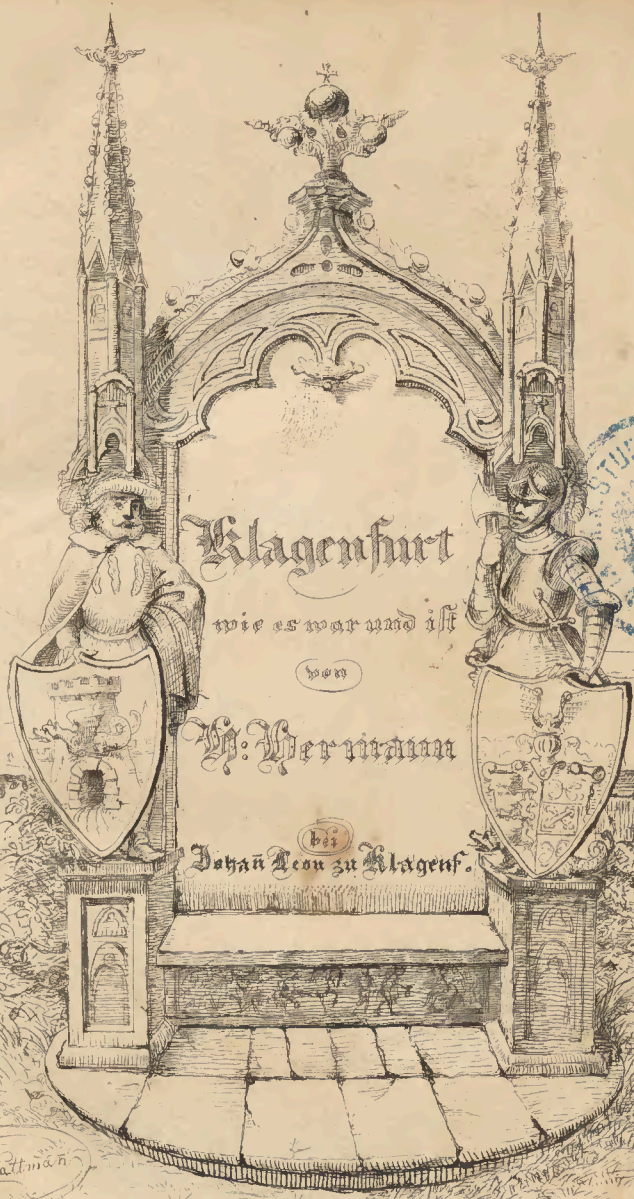 Klagenfurt
wie es war und ist
von
H: Hermann
bei
Johan̄ Leon zu Klagenf.
attman̄